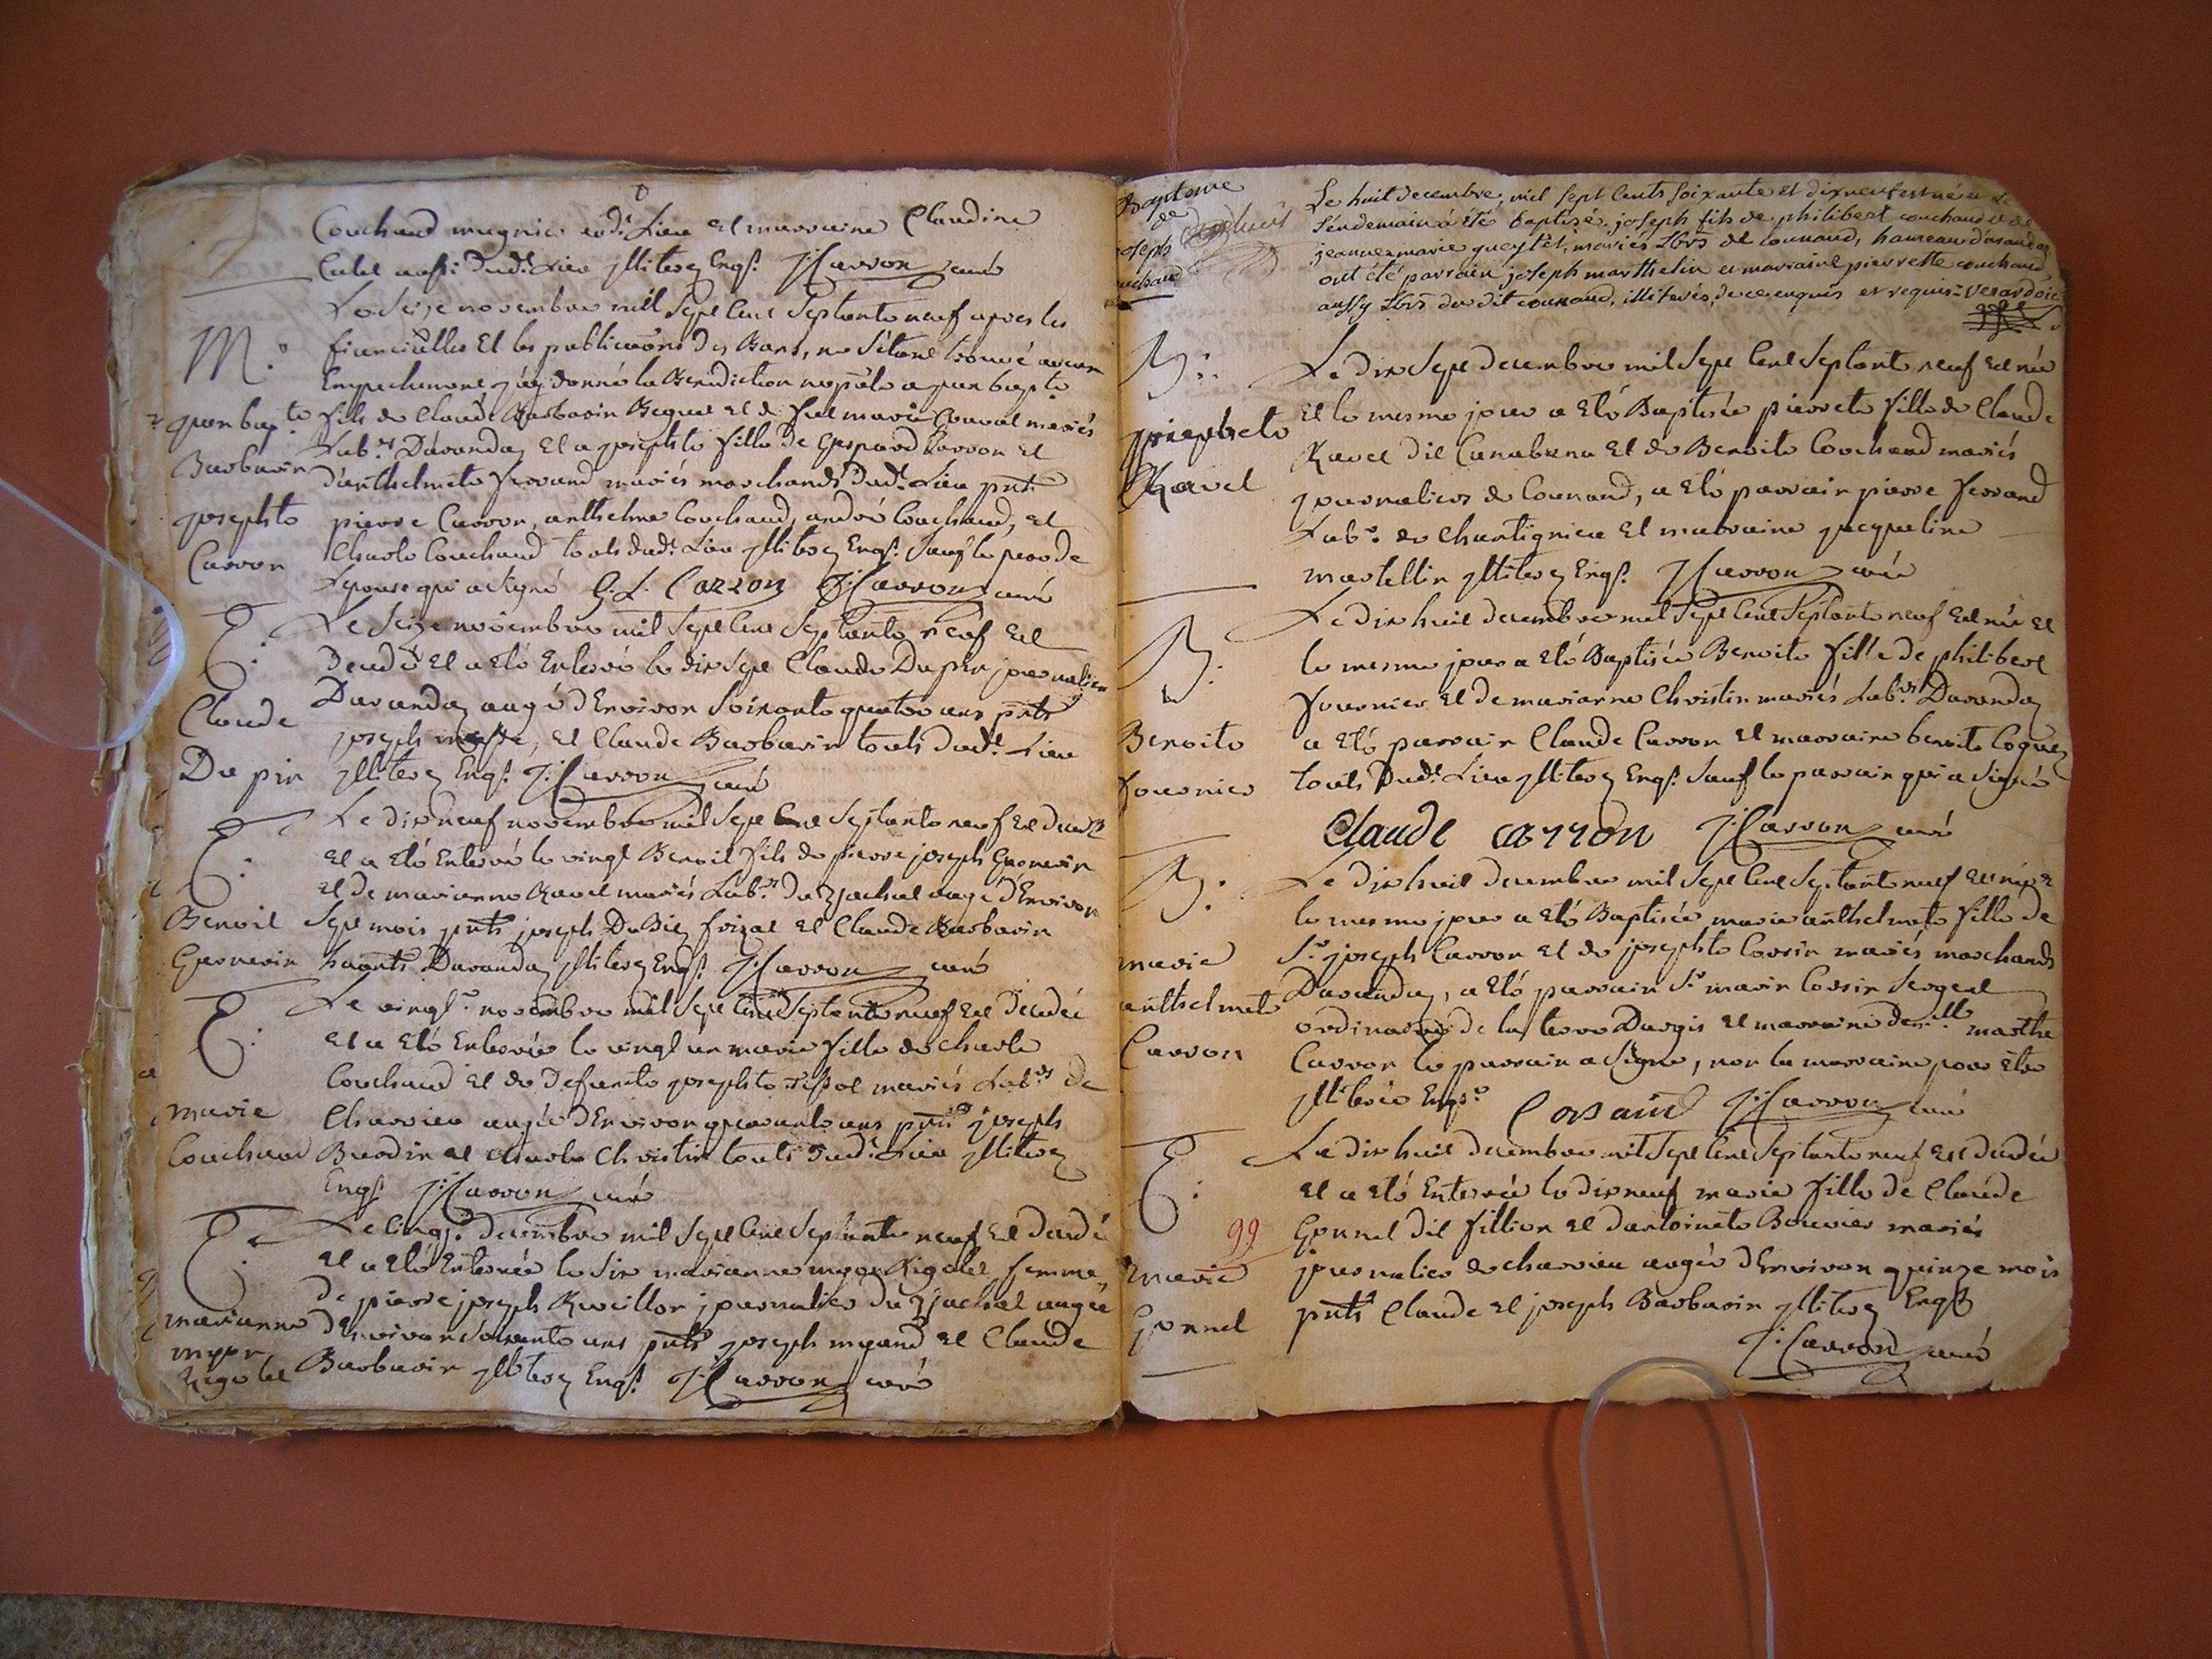 Couchaud magnier aud.t Lieu et marraine Claudine
Cabet aussi dud.t Lieu illiterez Enq.s J: Carron curé
M.
jean bapte
Barbarin
josephte
Carron
Le Seize novembre mil Sept Cent Septante neuf apres les
fiancialles Et les publications des Bans, ne s'étant trouvé aucun
Empechement j'ay donné la Benediction nuptiale a jean bapte
fils de Claude Barbarin Et de marie mariés
Lab.rs Davanday Et a josephte fille de Gaspard Carron Et
d'anthelmette ferrand mariés marchands dud.t Lieu pnts
pierre Carron, anthelme Couchaud, andré Couchaud, Et
Charle Couchaud touts dud.t Lieu illiterez Enq.s Sauf le pere de
L'epouse qui a signé G. L. Carron J: Carron curé
E.
Claude
Du pin
Le Seize novembre mil Sept Cent Septante neuf Est
Decedé Et a Eté Enterré le dix Sept Claude Dupin journalier
Davanday aagé d'Environ Soixante quatre ans pnts
joseph Et Claude Barbarin touts dud.t Lieu
illiterez Enq.s J: Carron curé
E.
Benoit
Guonevin
Le dix neuf novembre mil Sept Cent Septante neuf Est decedé
Et a Eté Enterré le vingt Benoit fils de pierre joseph Guonevin
Et de marianne Ravet mariés Lab.rs aagé d'Environ
Sept mois pnts joseph Et Claude Barbarin
habnts Davanday illiterez Enq.s J: Carron curé
E.
marie
Couchaud
Le vingt novembre mil Sept Cent Septante neuf Est Decedée
Et a Eté Enterrée le vingt un marie fille de Charle
Couchaud Et de Defuncte josephte mariés Lab.rs de
Charvieu aagée d'Environ quarante ans pnts joseph
Et Charle Christin touts dud.t Lieu illiterez
Enq.s J: Carron curé
E.
marianne
Rigolet
Le Cinq Decembre mil Sept Cent Septante neuf Est Decedée
Et a Eté Enterrée le Six marianne Rigolet femme
de pierre joseph journalier aagée
d'Environ Soixante ans pnts joseph Et Claude
Barbarin illiterez Enq.s J: Carron curé
Baptême
de
joseph
couchaud
Le huit decembre, mil sept cents soixante et dix neuf est né et le
lendemain à été baptisé joseph fils de philibert couchaud et de
jeanne marie gueytet, mariés Lbrs de counand, hameau d'avanday
ont été parrain joseph marthelin et marraine pierrette couchaud,
aussy Lbrs du dit counand, illiterés, de ce enquis et requis
B.
pierrete
Ravet
Le dix Sept decembre mil Sept Cent Septante neuf Est née
Et le mesme jour a Eté Baptisée pierrete fille de Claude
Ravet dit Et de Benoite Couchaud mariés
journaliers de Counand, a Eté parrain pierre ferrand
Lab.r de Chantignieu Et marraine jacqueline
martellin illiterez Enq.s J: Carron curé
B.
Benoite
fournier
Le dix huit decembre mil Sept Cent Septante neuf Est née et
le mesme jour a Eté Baptisée Benoite fille de philibert
fournier Et de marianne Christin mariés Lab.rs Davanday
a Eté parrain Claude Carron Et marraine benoite Coquez
touts Dud.t Lieu illiterez Enq.s Sauf le parrain qui a signé
Claude carron J: Carron curé
B.
marie
anthelmete
Carron
Le dix huit decembre mil Sept Cent Septante neuf Est née et
le mesme jour a Eté Baptisée marie anthelmete fille de
S.r joseph Carron Et de josephte Corsin mariés marchands
Davanday, a Eté parrain S.r marin Corsin Sergent
ordinaire de la terre Et marraine dem.lle marthe
Carron le parrain a Signé, non la marraine pour Etre
illiterée Enq.se J: Carron curé
E.
99
marie
Gonnel
Le dix huit decembre mil Sept Cent Septante neuf Est decedée
Et a Eté Enterrée le dix neuf marie fille de Claude
Gonnel dit fillion Et d'antoinette Bouvier mariés
journalier de charvieu aagée d'Environ quinze mois
pnts Claude Et joseph Barbarin illiterez Enq.s
J: Carron curé